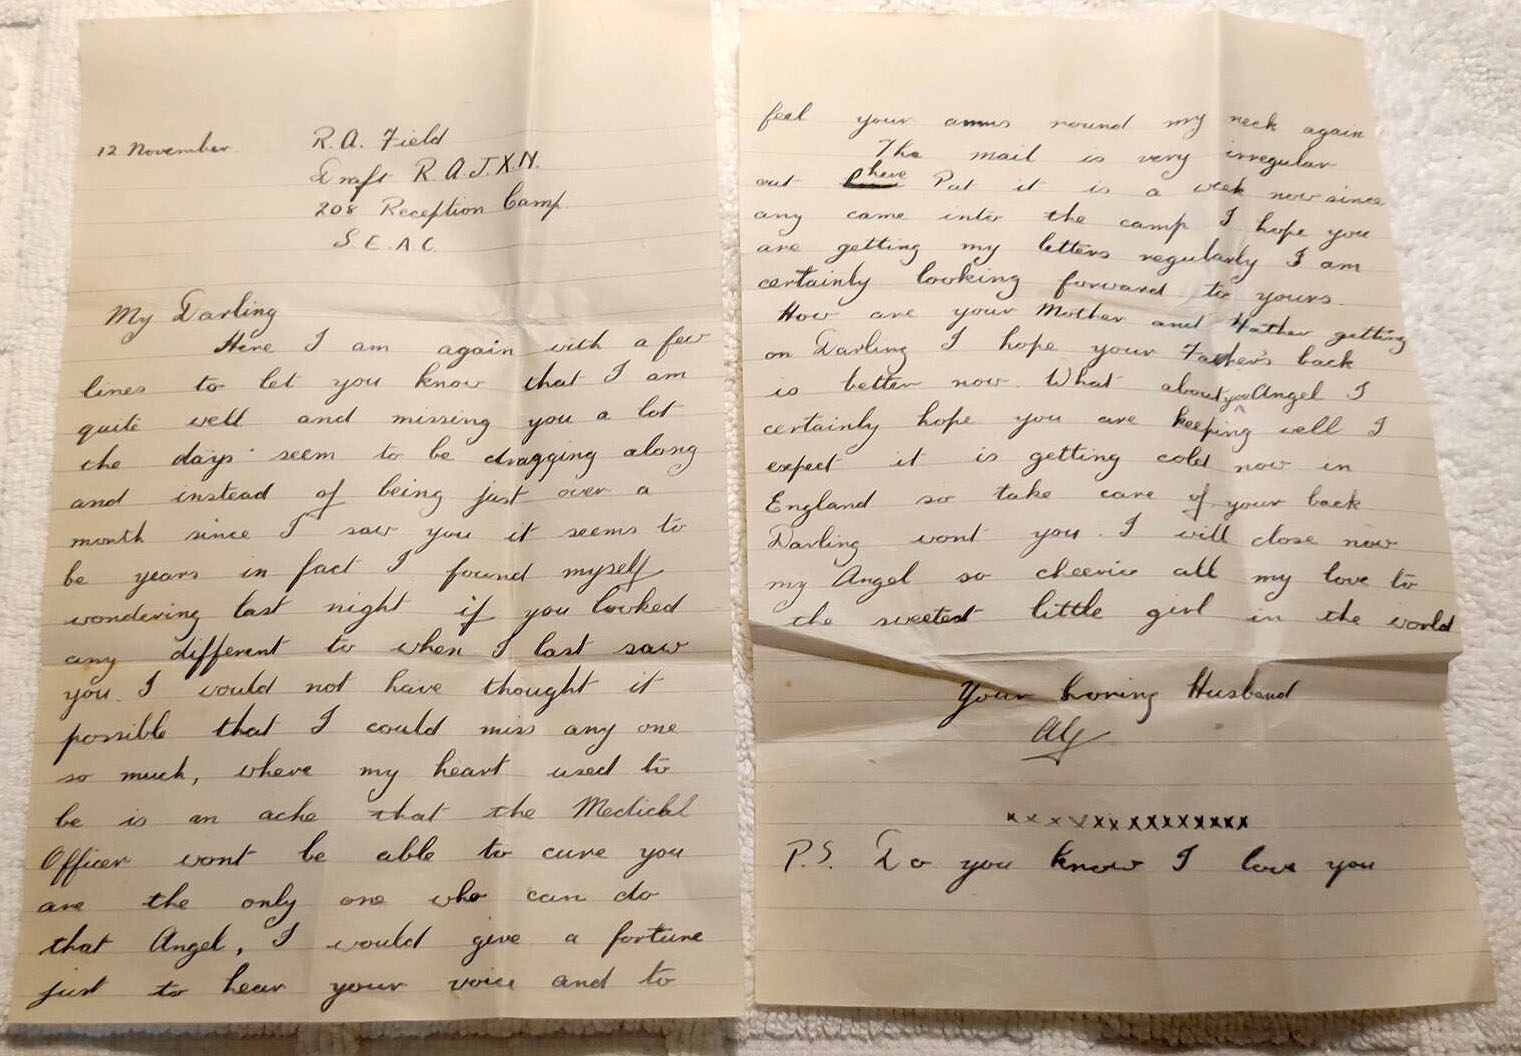 12 November.
R.A. Field
Draft R.A.J.X.N.
208 Reception Camp.
S.E.A.C.
My Darling
Here I am again with a few
lines to let you know that I am
quite well and missing you a lot
the days seem to be dragging along
and instead of being just over a
month since I saw you it seems to
be years in fact I found myself
wondering last night if you looked
any different to when I last saw
you. I would not have thought it
possible that I could miss any one
so much, where my heart used to
be is an ache that the Medical
Officer wont be able to cure you
are the only one who can do
that Angel, I would give a fortune
just to hear your voice and to
feel your arms round my neck again
The mail is very irregular
out here Pat it is a week now since
any came into the camp I hope you
are getting my letters regularly I am
certainly looking forward to yours.
How are your Mother and Father getting
on Darling I hope your Father's back
is better now. What about you Angel I
certainly hope you are keeping well I
expect it is getting cold now in
England so take care of your back
Darling wont you. I will close now
my Angel so cheerio all my love to
the sweetest little girl in the world
Your Loving Husband
Alf
xxxxxxxxxxxxxxx
P.S. Do you know I love you